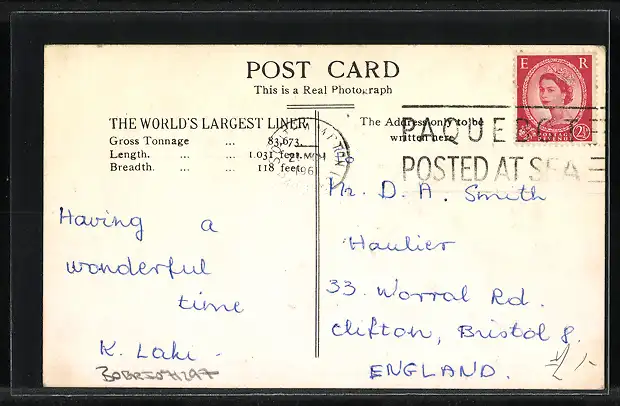 POST CARD
This is a Real Photograph
THE WORLD'S LARGEST LINER
Gross Tonnage ... 83,673.
Length. ... ... 1.031 feet.
Breadth. ... ... 118 feet.
The Address only to be
written here
E R
POSTAGE
2½D
PAQUEBOT
POSTED AT SEA
Having a
wonderful
time
K. Laki
Mr. D. A. Smith
Haulier
33. Worral Rd.
Clifton, Bristol 8.
ENGLAND.